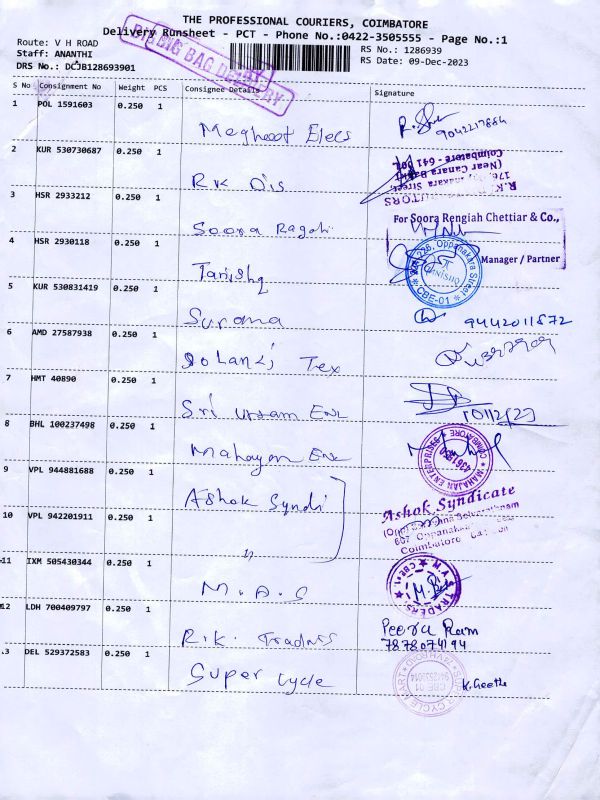 THE PROFESSIONAL COURIERS, COIMBATORE
Delivery Runsheet - PCT - Phone No.:0422-3505555 - Page No.:1
Route: V H ROAD
Staff: ANANTHI
DRS No.: DCJB128693901
RS No.: 1286939
RS Date: 09-Dec-2023
S No Consignment No Weight PCS Consignee Details Signature
1 POL 1591603 0.250 1
2 KUR 530730687 0.250 1 RK Dis
(Near Canara Bank)
Coimbatore - 641 001.
3 HSR 2933212 0.250 1 Soora Ragahi
For Soora Rengiah Chettiar & Co.,
Manager / Partner
4 HSR 2930118 0.250 1 Tanishq
226, Oppanakara Street
TANISHQ
CBE-01
5 KUR 530831419 0.250 1 Surana 9442011572
6 AMD 27587938 0.250 1 Solanki Tex
7 HMT 40890 0.250 1 Sri Uttam Ent
8 BHL 100237498 0.250 1 Mahagan Ent
MAHAJAN ENTERPRISES
COIMBATORE
9 VPL 944881688 0.250 1 Ashok Syndi
Ashok Syndicate
10 VPL 942201911 0.250 1 "
11 IXM 505430344 0.250 1 M.A.S
M.A.S TRADERS
CBE-1
12 LDH 700409797 0.250 1 R.K. Traders Peera Ram
7878074194
13 DEL 529372583 0.250 1 Super Cycle K. Geetha
SUPER CYCLE MART
CBE 01